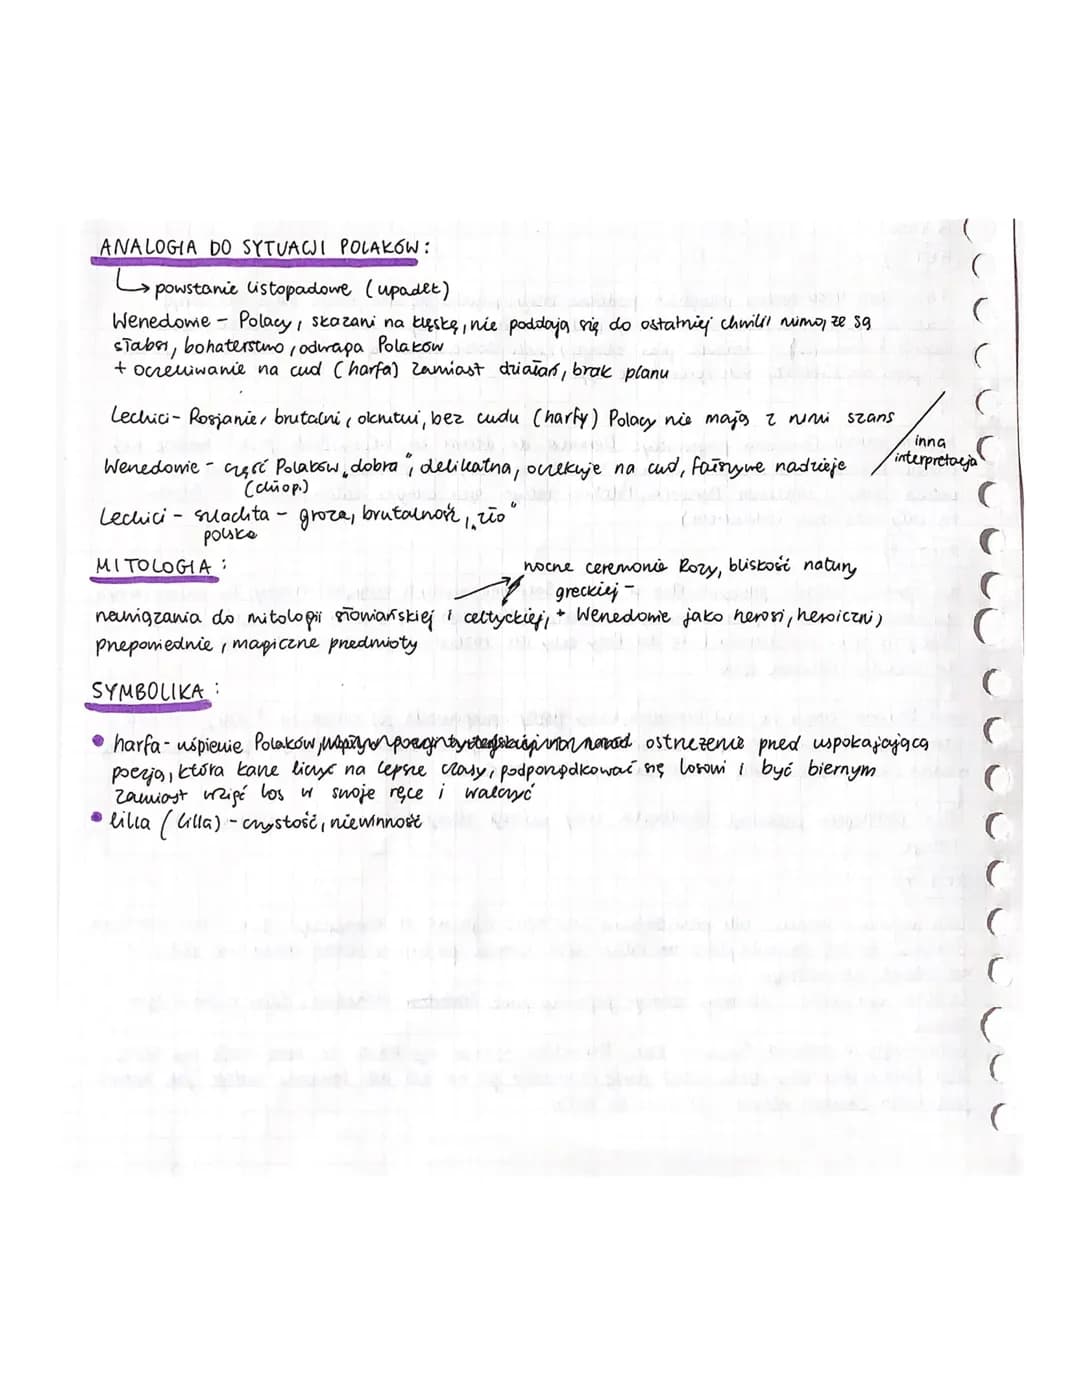 ANALOGIA DO SYTUACJI POLAKÓW:
powstanie listopadowe (upadek)
Wenedowie - Polacy, skazani na klęskę, nie poddają się do ostatniej chwili mimo, że są
słabsi, bohaterstwo, odwaga Polaków
+ oczekiwanie na cud (harfa) zamiast działań, brak planu
Lechici - Rosjanie, brutalni, okrutni, bez cudu (harfy) Polacy nie mają z nimi szans
inna
interpretacja
Wenedowie - część Polaków „dobra", delikatna, oczekuje na cud, fałszywe nadzieje
(chłop.)
Lechici - szlachta - groza, brutalność, „zło"
polska
MITOLOGIA:
nocne ceremonie Rozy, bliskość natury
greckiej -
nawiązania do mitologii słowiańskiej i celtyckiej, + Wenedowie jako herosi, heroiczni,
przepowiednie, magiczne przedmioty
SYMBOLIKA:
• harfa - uśpienie Polaków, ostrzeżenie przed uspokajającą
poezją, która każe liczyć na lepsze czasy, podporządkować się losowi i być biernym
zamiast wziąć los w swoje ręce i walczyć
• lilia (Lilla) - czystość, niewinność